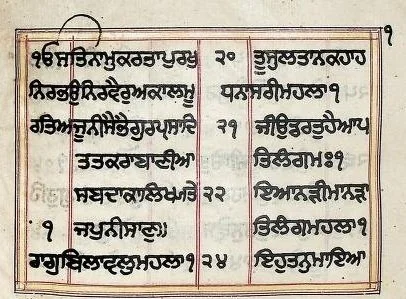 ੧
੧ਓ ਸਤਿਨਾਮੁਕਰਤਾਪੁਰਖੁ ੨੦ ਤੂਸੁਲਤਾਨਕਹਾਹ
ਨਿਰਭਉਨਿਰਵੈਰੁਅਕਾਲਮੂ ਧਨਾਸਰੀਮਹਲਾ੧
ਰਤਿਅਜੂਨੀਸੈਭੰਗੁਰਪ੍ਰਸਾਦਿ ੨੧ ਜੀਉਡਰਤੁਹੈਆਪ
ਤਤਕਰਾਬਾਣੀਆ ਤਿਲੰਗਮਃ੧
ਸਬਦਾਕਾਲਿਖਾਤੇ ੨੨ ਇਆਨੜੀਮਾਨੜਾ
੧ ਜਪੁਨੀਸਾਣੁ॥ ਤਿਲੰਗਮਹਲਾ੧
ਰਾਗੁਬਿਲਾਵਲੁਮਹਲਾ੧ ੨੪ ਇਹੁਤਨੁਮਾਇਆ